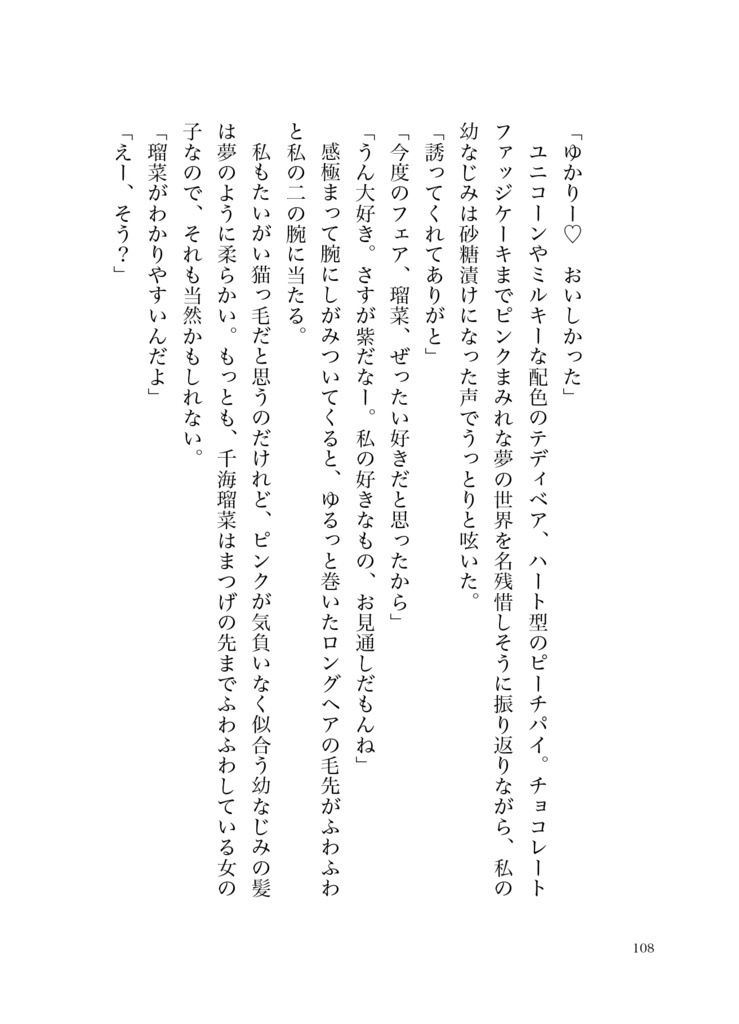 「ゆかりー♡　おいしかった」
　ユニコーンやミルキーな配色のテディベア、ハート型のピーチパイ。チョコレート
ファッジケーキまでピンクまみれな夢の世界を名残惜しそうに振り返りながら、私の
幼なじみは砂糖漬けになった声でうっとりと呟いた。
「誘ってくれてありがと」
「今度のフェア、瑠菜、ぜったい好きだと思ったから」
「うん大好き。さすが紫だなー。私の好きなもの、お見通しだもんね」
　感極まって腕にしがみついてくると、ゆるっと巻いたロングヘアの毛先がふわふわ
と私の二の腕に当たる。
　私もたいがい猫っ毛だと思うのだけれど、ピンクが気負いなく似合う幼なじみの髪
は夢のように柔らかい。もっとも、千海瑠菜はまつげの先までふわふわしている女の
子なので、それも当然かもしれない。
「瑠菜がわかりやすいんだよ」
「えー、そう？」
108